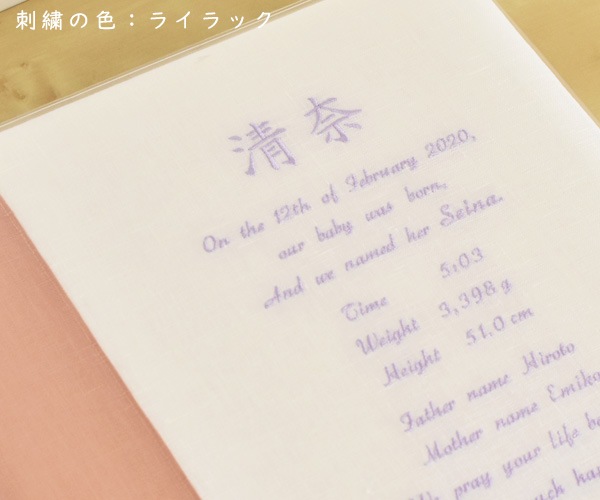 刺繍の色：ライラック
清奈
On the 12th of February 2020,
our baby was born,
And we named her Seina.
Time 5:03
Weight 3,398 g
Height 51.0 cm
Father name Hiroto
Mother name Emiko
We pray your life be